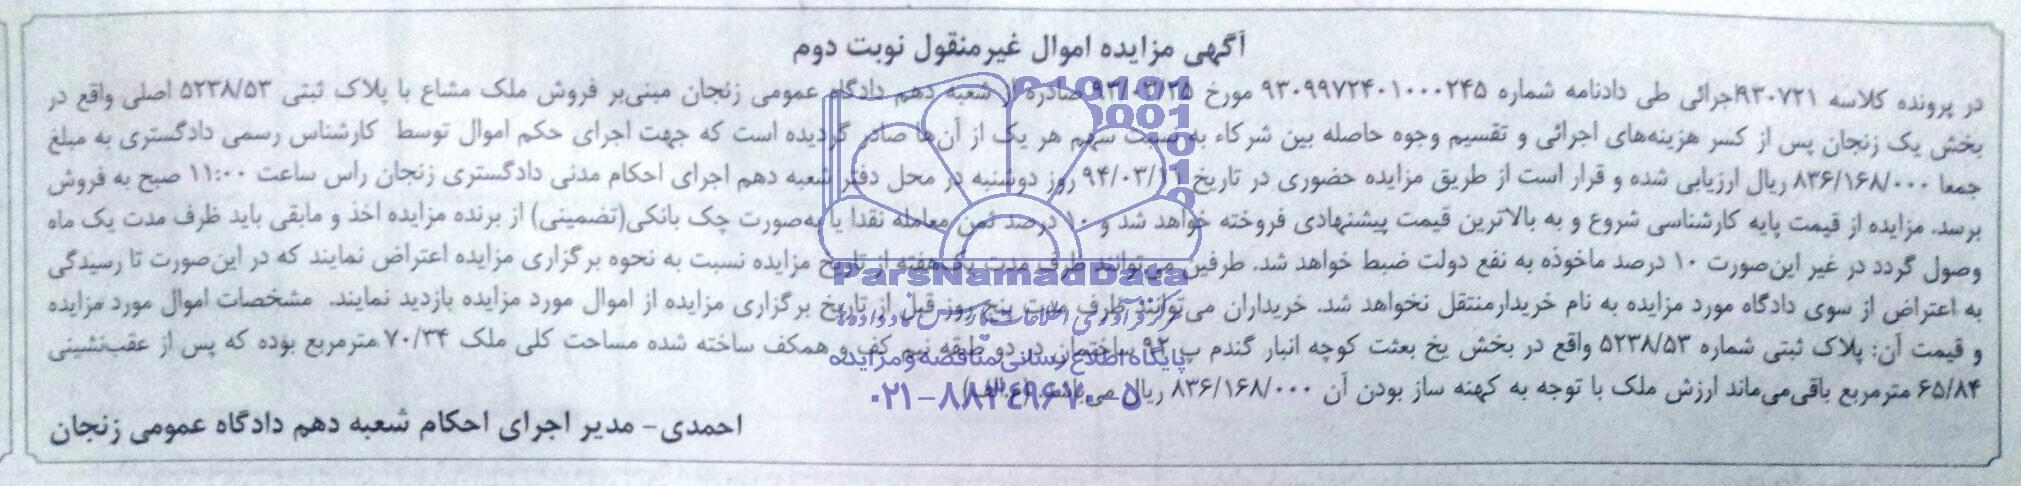 آگهی مزایده اموال غیرمنقول نوبت دوم
در پرونده کلاسه ۹۳۰۷۲۱اجرائی طی دادنامه شماره ۹۳۰۹۹۷۲۴۰۱۰۰۰۲۴۵ مورخ ۹۳/۰۳/۲۵ صادره از شعبه دهم دادگاه عمومی زنجان مبنی‌بر فروش ملک مشاع با پلاک ثبتی ۵۲۳۸/۵۳ اصلی واقع در
بخش یک زنجان پس از کسر هزینه‌های اجرائی و تقسیم وجوه حاصله بین شرکاء به نسبت سهم هر یک از آن‌ها صادر گردیده است که جهت اجرای حکم اموال توسط کارشناس رسمی دادگستری به مبلغ
جمعا ۸۳۶/۱۶۸/۰۰۰ ریال ارزیابی شده و قرار است از طریق مزایده حضوری در تاریخ ۹۴/۰۳/ روز دوشنبه در محل دفتر شعبه دهم اجرای احکام مدنی دادگستری زنجان راس ساعت ۱۱:۰۰ صبح به فروش
برسد. مزایده از قیمت پایه کارشناسی شروع و به بالاترین قیمت پیشنهادی فروخته خواهد شد و ۱۰ درصد ثمن معامله نقدا یا به‌صورت چک بانکی(تضمینی) از برنده مزایده اخذ و مابقی باید ظرف مدت یک ماه
وصول گردد در غیر این‌صورت ۱۰ درصد ماخوذه به نفع دولت ضبط خواهد شد. طرفین می‌توانند ظرف مدت یک هفته از تاریخ مزایده نسبت به نحوه برگزاری مزایده اعتراض نمایند که در این‌صورت تا رسیدگی
به اعتراض از سوی دادگاه مورد مزایده به نام خریدارمنتقل نخواهد شد. خریداران می‌توانند ظرف مدت پنج روز قبل از تاریخ برگزاری مزایده از اموال مورد مزایده بازدید نمایند. مشخصات اموال مورد مزایده
و قیمت آن: پلاک ثبتی شماره ۵۲۳۸/۵۳ واقع در بخش یخ بعثت کوچه انبار گندم پ ۹۲ ساختمان در دو طبقه نیم کف و همکف ساخته شده مساحت کلی ملک ۷۰/۳۴ مترمربع بوده که پس از عقب‌نشینی
۶۵/۸۴ مترمربع باقی‌می‌ماند ارزش ملک با توجه به کهنه ساز بودن آن ۸۳۶/۱۶۸/۰۰۰ ریال می‌باشد.
احمدی- مدیر اجرای احکام شعبه دهم دادگاه عمومی زنجان
ParsNamadData
مرکز فرآوری اطلاعات پارس نماد داده‌ها
پایگاه اطلاع رسانی مناقصه و مزایده
۰۲۱-۸۸۳۴۹۶۷۰-۵